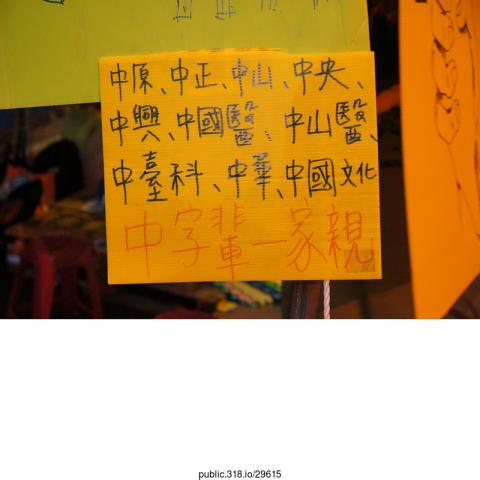 中原、中正、中山、中央、
中興、中國醫、中山醫、
中臺科、中華、中國文化
中字輩一家親
public.318.io/29615